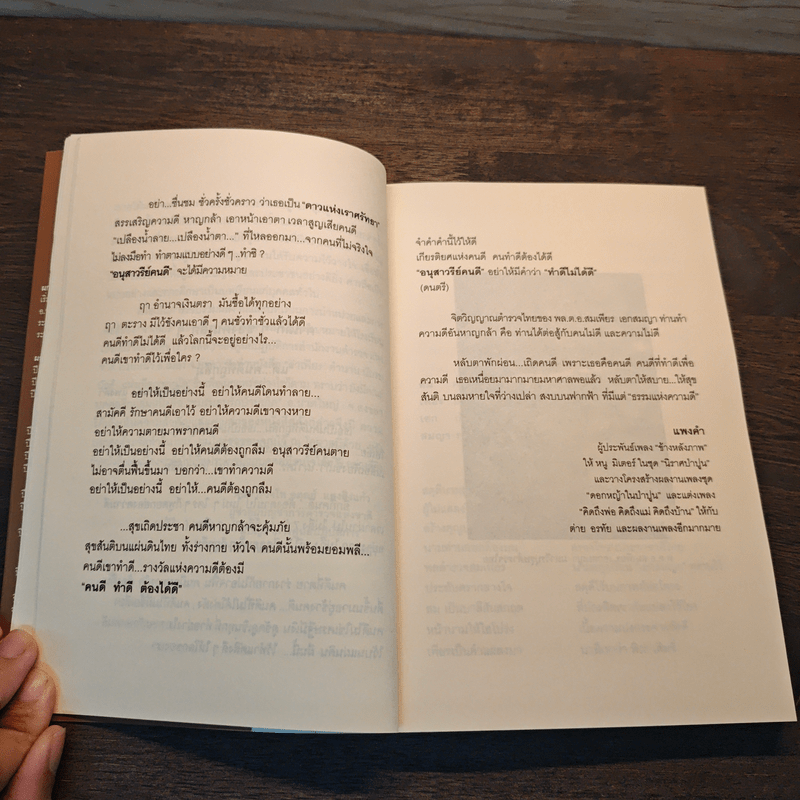 อย่า...ชื่นชม ชั่วครั้งชั่วคราว ว่าเธอเป็น "ดาวแห่งเราศรัทธา"
สรรเสริญความดี หาญกล้า เอาหน้าเอาตา เวลาสูญเสียคนดี
"เปลืองน้ำลาย...เปลืองน้ำตา..." ที่ไหลออกมา...จากคนที่ไม่จริงใจ
ไม่ลงมือทำ ทำตามแบบอย่างดี ๆ ..ทำซิ ?
"อนุสาวรีย์คนดี" จะได้มีความหมาย
ฤา อำนาจเงินตรา มันซื้อได้ทุกอย่าง
ฤา ตะราง มีไว้ขังคนเอาดี ๆ คนชั่วทำชั่วแล้วได้ดี
คนดีทำดีไม่ได้ดี แล้วโลกนี้จะอยู่อย่างไร...
คนดีเขาทำดีไว้เพื่อใคร ?
อย่าให้เป็นอย่างนี้ อย่าให้คนดีโดนทำลาย...
สามัคคี รักษาคนดีเอาไว้ อย่าให้ความดีเขาจางหาย
อย่าให้ความตายมาพรากคนดี
อย่าให้เป็นอย่างนี้ อย่าให้คนดีต้องถูกลืม อนุสาวรีย์คนตาย
ไม่อาจตื่นฟื้นขึ้นมา บอกว่า...เขาทำความดี
อย่าให้เป็นอย่างนี้ อย่าให้...คนดีต้องถูกลืม
...สุขเถิดประชา คนดีหาญกล้าจะคุ้มภัย
สุขสันติบนแผ่นดินไทย ทั้งร่างกาย หัวใจ คนดีนั้นพร้อมยอมพลี...
คนดีเขาทำดี...รางวัลแห่งความดีต้องมี
"คนดี ทำดี ต้องได้ดี"
จำคำคำนี้ไว้ให้ดี
เกียรติยศแห่งคนดี คนทำดีต้องได้ดี
"อนุสาวรีย์คนดี" อย่าให้มีคำว่า "ทำดีไม่ได้ดี"
(ดนตรี)
จิตวิญญาณตำรวจไทยของ พล.ต.อ.สมเพียร เอกสมญา ท่านทำ
ความดีอันหาญกล้า คือ ท่านได้ต่อสู้กับคนไม่ดี และความไม่ดี
หลับตาพักผ่อน...เถิดคนดี เพราะเธอคือคนดี คนดีที่ทำดีเพื่อ
ความดี เธอเหนื่อยมามากมายมหาศาลพอแล้ว หลับตาให้สบาย...ให้สุข
สันติ บนลมหายใจที่ว่างเปล่า สงบบนฟากฟ้า ที่มีแต่ "ธรรมแห่งความดี"
แพงคำ
ผู้ประพันธ์เพลง "ช้างหลังภาพ"
ให้ หนู มิเตอร์ ในชุด "นิราศป่าปูน"
และวางโครงสร้างผลงานเพลงชุด
"ดอกหญ้าในป่าปูน" และแต่งเพลง
"คิดถึงพ่อ คิดถึงแม่ คิดถึงบ้าน" ให้กับ
ต่าย อรทัย และผลงานเพลงอีกมากมาย